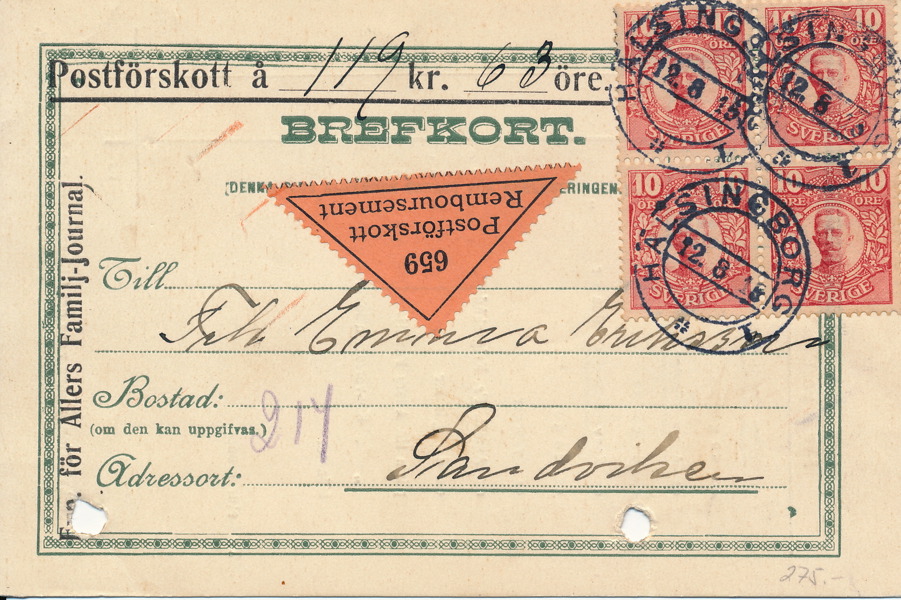 Postförskott å 119 kr. 63 öre.
BREFKORT.
[DENNA
ERINGEN
Postförskott
Remboursement
659
Till
Frk Emma Eriksson
Bostad:
(om den kan uppgifvas.)
214
Adressort:
Sandviken
för Allers Familj-Journal.
10 ÖRE 10
SVERIGE
10 ÖRE 10
SVERIGE
10 ÖRE 10
SVERIGE
10 ÖRE 10
SVERIGE
HÄLSINGBORG
12. 8. 15
HÄLSINGBORG
12. 8.
HÄLSINGBORG
12. 8. 15
275.-